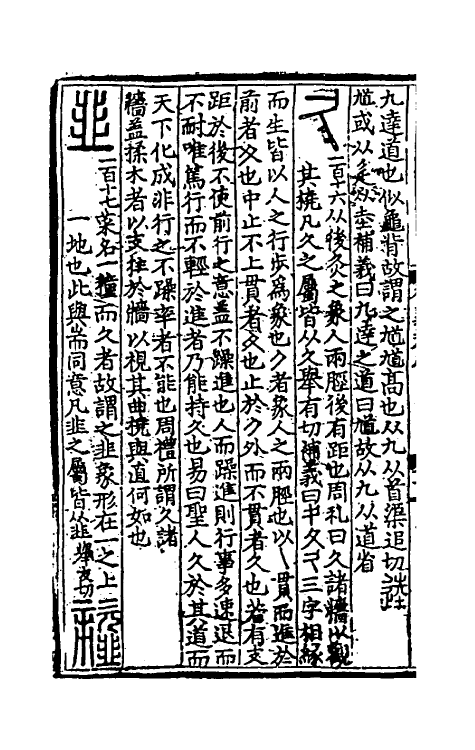 九達道也似龜背故謂之馗馗高也从九从首渠追切
馗或从辵从坴補義曰九達之道曰馗故从九从道省
二百十六从後灸之象人兩脛後有距也周礼曰久諸牆以觀
其橈凡久之屬皆从久舉有切補義曰夂久三字相緣
而生皆以人之行步爲象也久者象人之兩脛也以乀貫而進於
前者夂也中止不上貫者夂也止於久外而不貫者久也若有支
距於後不使前行之意蓋不躁進也人而躁進則行事多速退而
不耐唯篤行而不輕於進者乃能持久也易曰聖人久於其道而
天下化成非行之不躁率者不能也周禮所謂久諸
牆蓋揉木者以支柱於牆以視其曲橈與直何如也
韭
二百十七菜名一種而久者故謂之韭象形在一之上
一地也此與耑同意凡韭之屬皆从韭舉友切